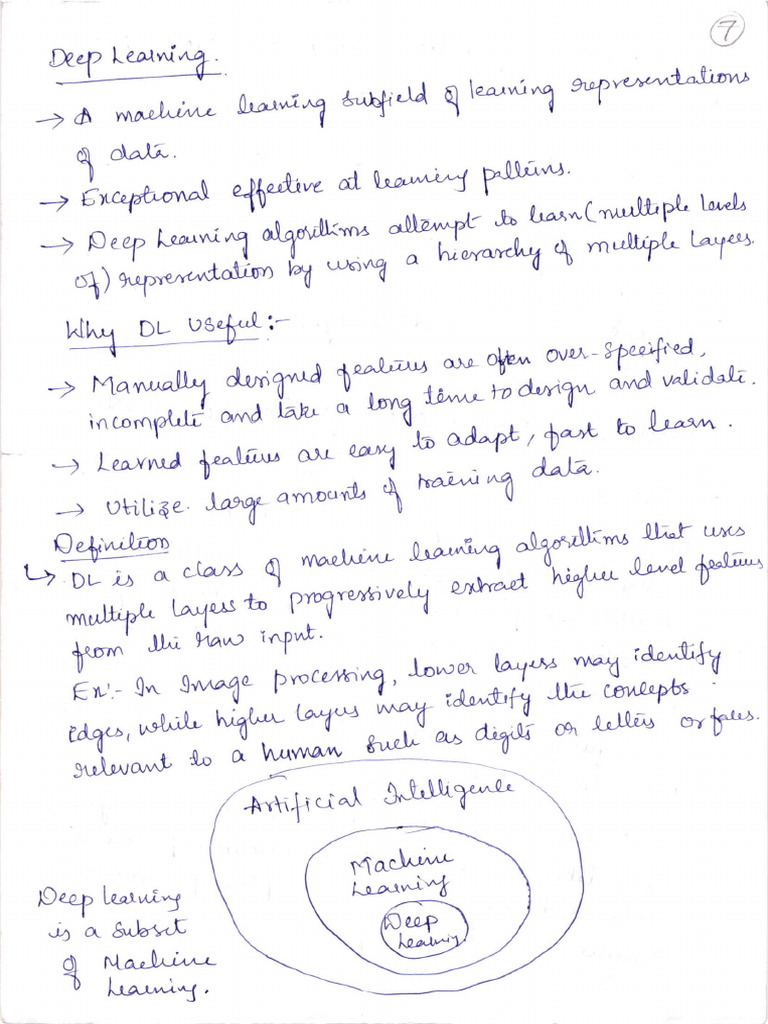 7
Deep Learning.
→ A machine learning subfield of learning representations
of data.
→ Exceptional effective at learning patterns.
→ Deep Learning algorithms attempt to learn (multiple levels
of) representation by using a hierarchy of multiple layers.
Why DL Useful:-
→ Manually designed features are often over-specified,
incomplete and take a long time to design and validate.
→ Learned features are easy to adapt, fast to learn.
→ Utilize large amounts of training data.
Definition
↳ DL is a class of machine learning algorithms that uses
multiple layers to progressively extract higher level features
from the raw input.
Ex:- In Image processing, lower layers may identify
edges, while higher layers may identify the concepts
relevant to a human such as digits or letters or faces.
Artificial Intelligence
Machine
Learning
Deep
Learning
Deep learning
is a subset
of Machine
Learning.